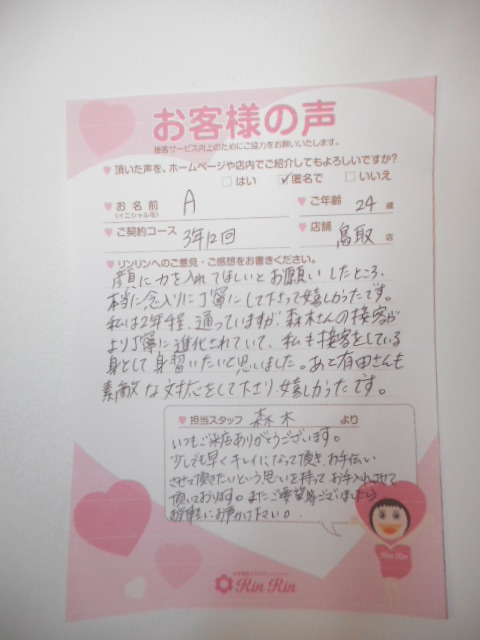 お客様の声
接客サービス向上のためにご協力をお願いいたします。
♥ 頂いた声を、ホームページや店内でご紹介してもよろしいですか?
□ はい ☑ 匿名で □ いいえ
♥ お名前 A ♥ ご年齢 24 歳
(イニシャル可)
♥ ご契約コース 3年12回 ♥ 店舗 鳥取 店
♥ リンリンへのご意見・ご感想をお書きください。
顔に力を入れてほしいとお願いしたところ、
本当に念入りに丁寧にして下さって嬉しかったです。
私は2年程、通っていますが、森木さんの接客が
より丁寧に進化されていて、私も接客をしている
身として見習いたいと思いました。あと有田さんも
素敵な対応をして下さり、嬉しかったです。
♥ 担当スタッフ 森木 より
いつもご来店ありがとうございます。
少しでも早くキレイになって頂き、お手伝い
させて頂きたいという思いを持って、お手入れさせて
頂いております。またご要望等ございましたら
お気軽にお声かけ下さい。
Rin Rin
Rin Rin